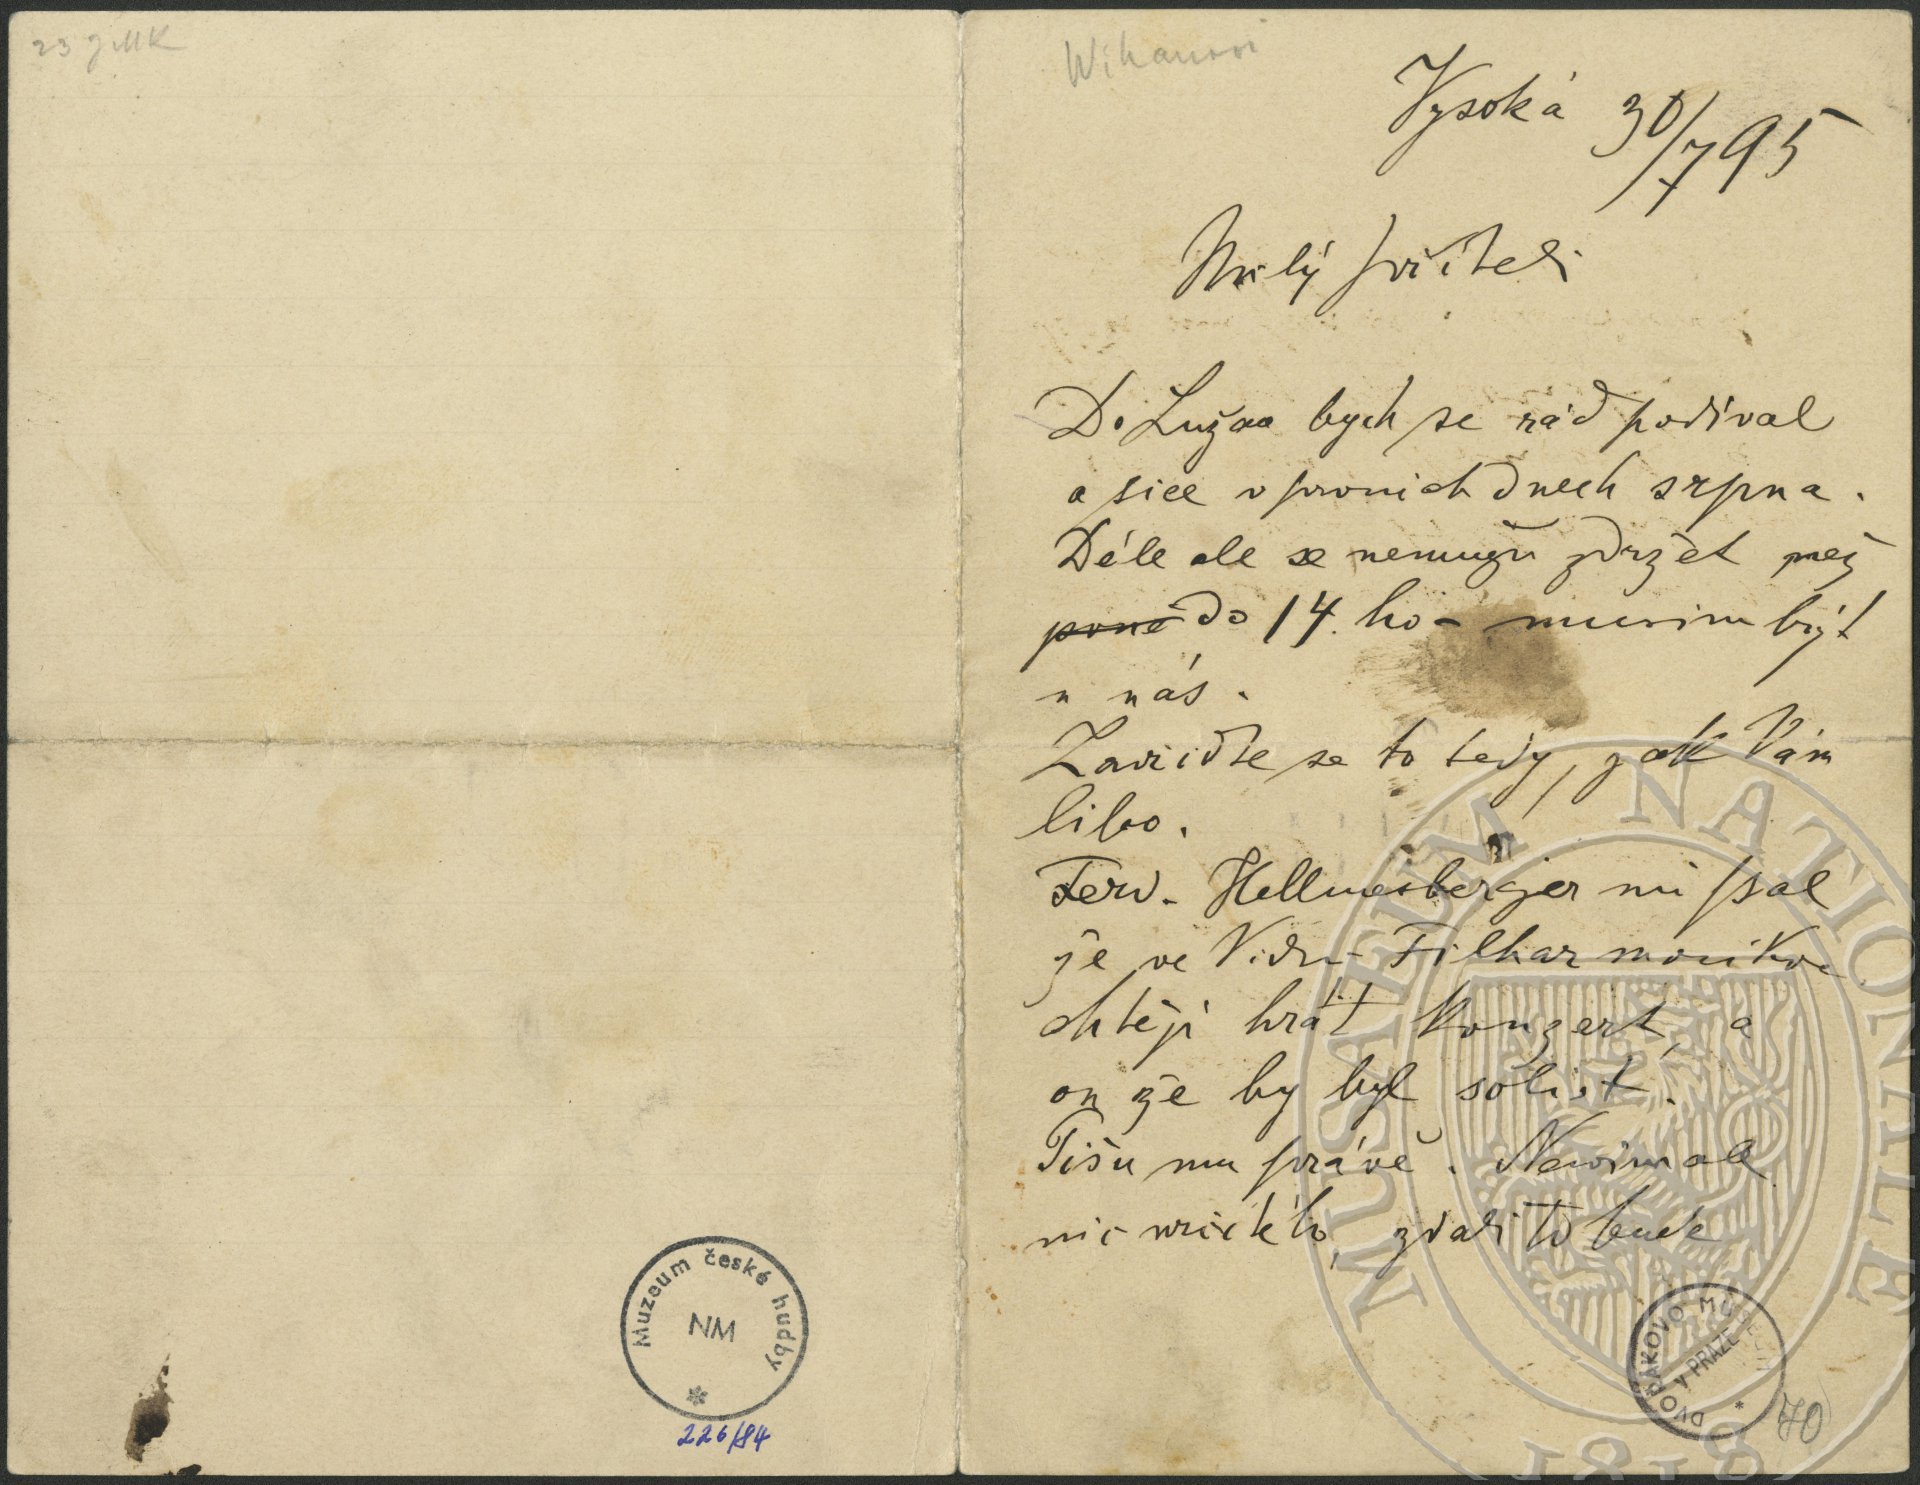 23 JMK
Wihanovi
Vysoká 30/7 95
Milý příteli
Do Lužan bych se rád podíval
a sice v prvních dnech srpna.
Déle ale se nemužu zdržet než
do 14. ho – musim být
u nás.
Zařiďte se to tedy, jak Vám
libo.
Ferd. Hellmesberger mi psal
že ve Vídn- Filharmonikové
chtějí hrát Konzert, a
on že by byl sólist.
Píšu mu právě. Nevím ale
nic určitého, zdali to bude
Muzeum české hudby
NM
226/84
DVOŘÁKOVO MUSEUM
V PRAZE
70
MUSAEUM NATIONALE
1818